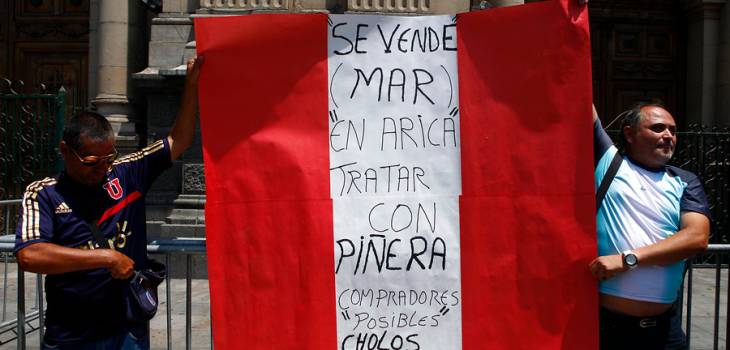 "SE VENDE
(MAR)"
"EN ARICA"
TRATAR
CON
PIÑERA
COMPRADORES
"POSIBLES"
CHOLOS
U
Claro